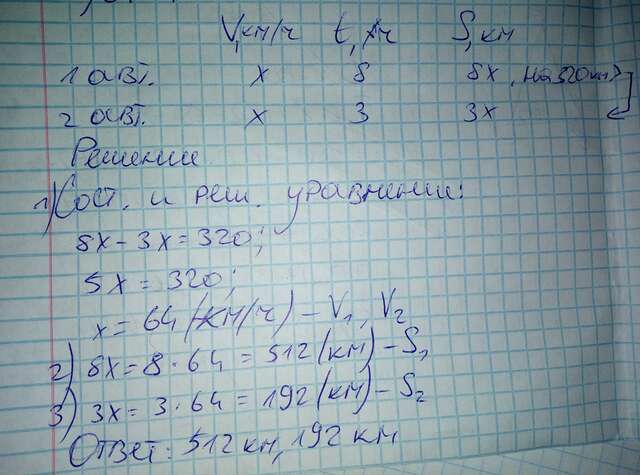 V, км/ч t, ч S, км
1 авт. x 8 8x, на 320 км >
2 авт. x 3 3x
Решение
1) Сост. и реш. уравнение:
8x - 3x = 320;
5x = 320;
x = 64 (км/ч) - V₁, V₂
2) 8x = 8 · 64 = 512 (км) - S₁
3) 3x = 3 · 64 = 192 (км) - S₂
Ответ: 512 км, 192 км